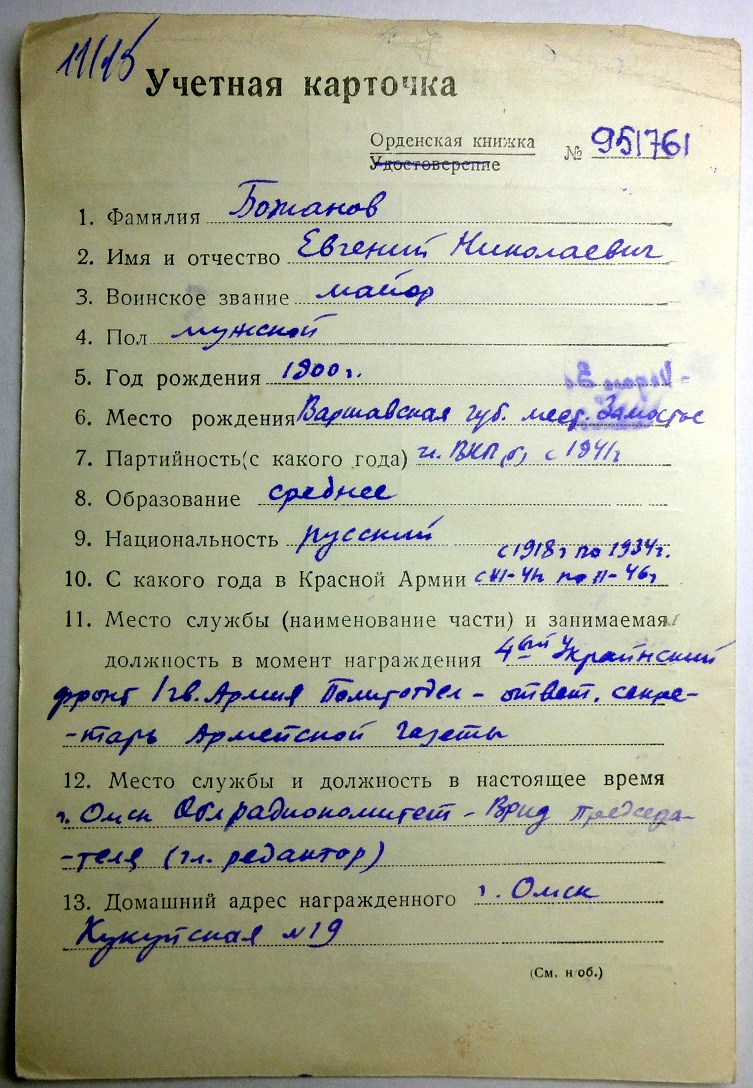 11/15
Учетная карточка
Орденская книжка
Удостоверение № 951761
1. Фамилия Божанов
2. Имя и отчество Евгений Николаевич
3. Воинское звание майор
4. Пол мужской
5. Год рождения 1900 г.
6. Место рождения Варшавская губ. мест. Замостье
7. Партийность (с какого года) чл. ВКП(б) с 1941 г
8. Образование среднее
9. Национальность русский
с 1918 г по 1934 г.
10. С какого года в Красной Армии с по II-46 г
11. Место службы (наименование части) и занимаемая
должность в момент награждения 4ый Украинский
фронт 1 гв. Армия Политотдел - ответ. секре-
-тарь Армейской газеты
12. Место службы и должность в настоящее время
г. Омск Облрадиокомитет - Врид председа-
-теля (гл. редактор)
13. Домашний адрес награжденного г. Омск
Кукуйская №19
(См. н/об.)